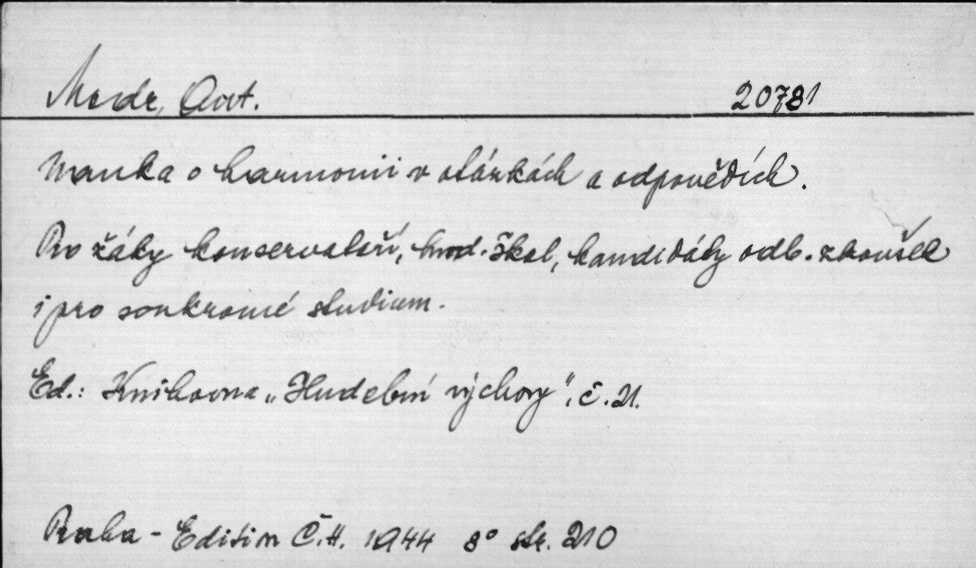 Modr, Ant. 20781
Nauka o harmonii v otázkách a odpovědích.
Pro žáky konservatoří, hud. škol, kandidáty odb. zkoušek
i pro soukromé studium.
Ed.: Knihovna „Hudební výchovy", č. 21.
Praha - Edition Č.H. 1944 8° str. 210